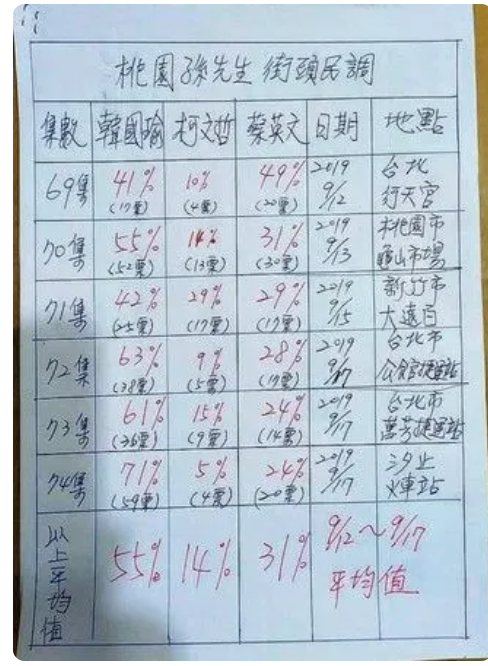 桃園孫先生街頭民調
集數 韓國瑜 柯文哲 蔡英文 日期 地點
69集 41% 10% 49% 2019 台北
(17票) (4票) (20票) 9/12 行天宮
70集 55% 14% 31% 2019 桃園市
(52票) (13票) (30票) 9/13 龜山市場
71集 42% 29% 29% 2019 新竹市
(25票) (17票) (17票) 9/15 大遠百
72集 63% 9% 28% 2019 台北市
(38票) (5票) (17票) 9/17 公館捷運站
73集 61% 15% 24% 2019 台北市
(36票) (9票) (14票) 9/17 萬芳捷運站
74集 71% 5% 24% 2019 汐止
(59票) (4票) (20票) 9/17 火車站
以上平均值 55% 14% 31% 9/12~9/17
平均值